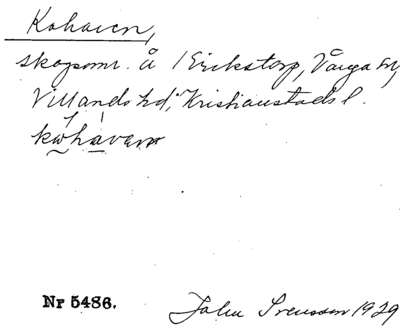 Kohaven,
skogsomr. å 1 Erikstorp, Vånga sn,
Villands hd, Kristianstads l.
kωhávenͽ
Nr 5486.
John Svensson 1929